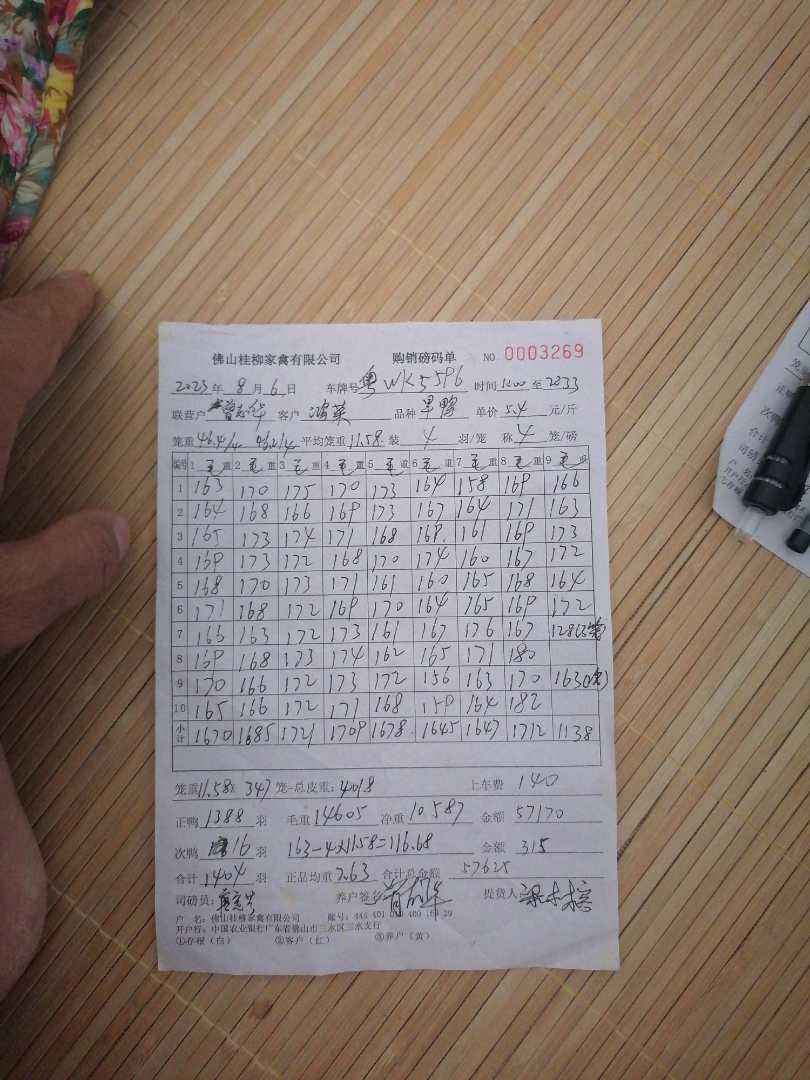 佛山桂柳家禽有限公司 购销磅码单 NO 0003269
2023年 8月 6日 车牌号 粤WK5596 时间 至 2033
联营户 曾志华 客户 鸿英 品种 旱鸭 单价 5.4 元/斤
笼重 46.4/4 46.2/4 平均笼重 11.58 装 4 羽/笼 称 4 笼/磅
编号 1 毛重 2 毛重 3 毛重 4 毛重 5 毛重 6 毛重 7 毛重 8 毛重 9 毛重
1 163 170 175 170 173 164 158 169 166
2 164 168 166 169 173 167 164 171 163
3 165 173 174 171 168 169 161 169 173
4 169 173 172 168 170 174 160 167 172
5 168 170 173 171 161 160 165 168 164
6 171 168 172 169 170 164 165 169 172
7 166 163 172 173 161 167 176 167 128(3笼)
8 169 168 173 174 162 165 171 180
9 170 166 172 173 172 156 163 170 163(次)
10 165 166 172 171 168 159 164 182
小计 1670 1685 1721 1709 1678 1645 1647 1712 1138
笼重 11.58 x 347 笼=总皮重: 4018 上车费 140
正鸭 1388 羽 毛重 14605 净重 10587 金额 57170
次鸭 16 羽 163-4x11.58=116.68 金额 315
合计 1404 羽 正品均重 7.63 合计总金额 57625
司磅员: 养户签名 提货人
户 名: 佛山桂柳家禽有限公司 账号: 444 401
开户行: 中国农业银行广东省佛山市三水区三水支行
①存根(白) ②客户(红) ③养户(黄)